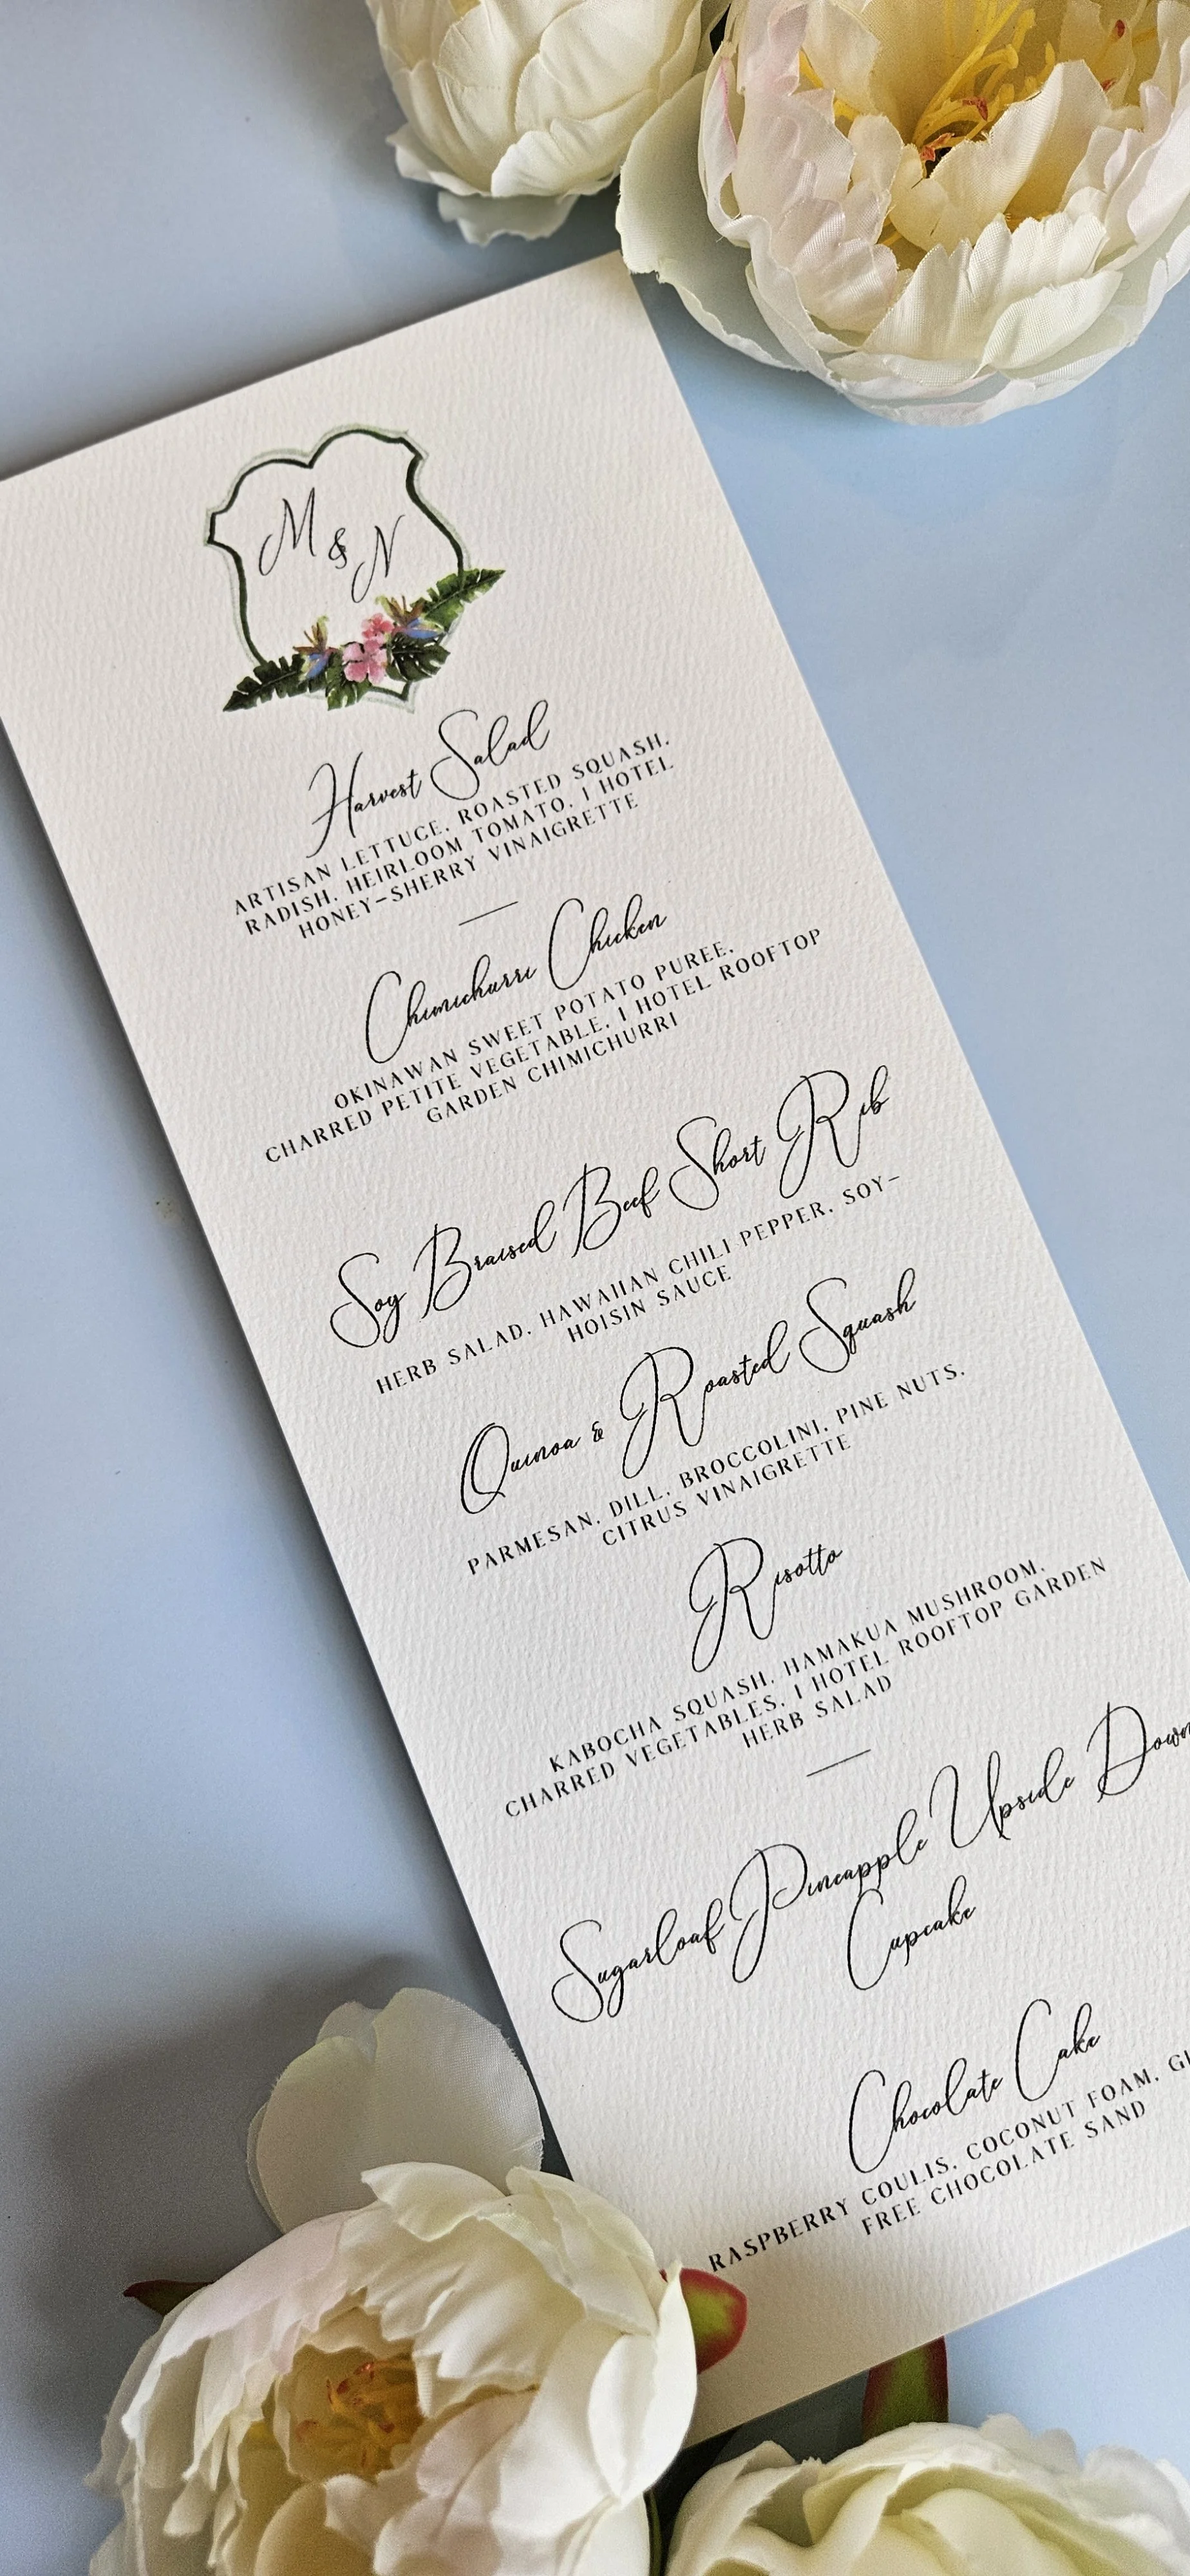 M & N
Harvest Salad
ARTISAN LETTUCE, ROASTED SQUASH,
RADISH, HEIRLOOM TOMATO, 1 HOTEL
HONEY-SHERRY VINAIGRETTE
Chimichurri Chicken
OKINAWAN SWEET POTATO PUREE,
CHARRED PETITE VEGETABLE, 1 HOTEL ROOFTOP
GARDEN CHIMICHURRI
Soy Braised Beef Short Rib
HERB SALAD, HAWAIIAN CHILI PEPPER, SOY-
HOISIN SAUCE
Quinoa & Roasted Squash
PARMESAN, DILL, BROCCOLINI, PINE NUTS,
CITRUS VINAIGRETTE
Risotto
KABOCHA SQUASH, HAMAKUA MUSHROOM,
CHARRED VEGETABLES, 1 HOTEL ROOFTOP GARDEN
HERB SALAD
Sugarloaf Pineapple Upside Down
Cupcake
Chocolate Cake
RASPBERRY COULIS, COCONUT FOAM,
FREE CHOCOLATE SAND